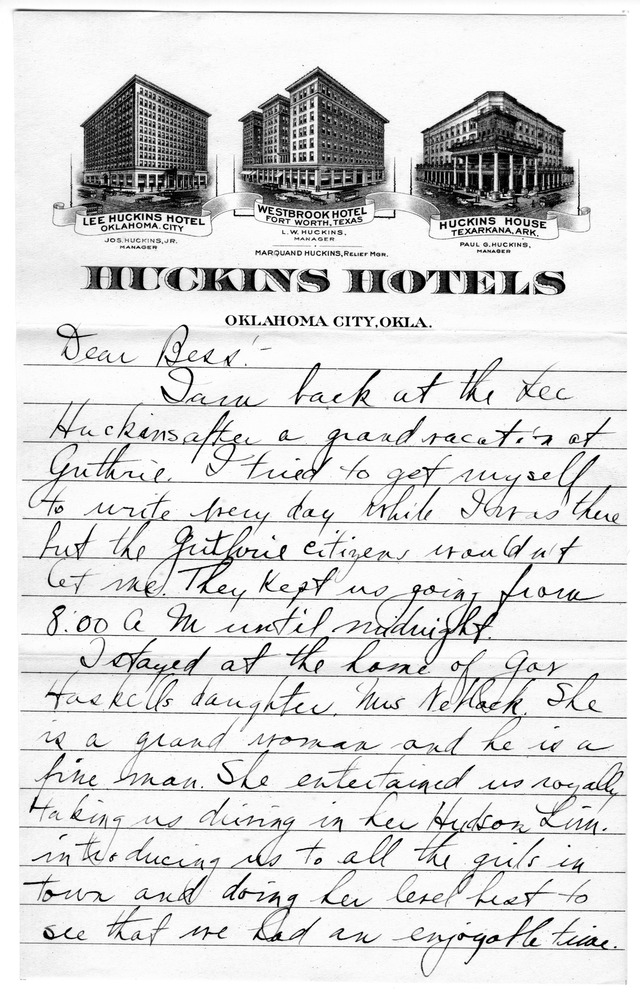 LEE HUCKINS HOTEL
OKLAHOMA CITY
JOS. HUCKINS, JR.
MANAGER
WESTBROOK HOTEL
FORT WORTH, TEXAS
L. W. HUCKINS,
MANAGER
MARQUAND HUCKINS, RELIEF MGR.
HUCKINS HOUSE
TEXARKANA, ARK.
PAUL G. HUCKINS,
MANAGER
HUCKINS HOTELS
OKLAHOMA CITY, OKLA.
Dear Bess:-
I am back at the Lee
Huckins after a grand vacation at
Guthrie. I tried to get myself
to write every day while I was there
but the Guthrie citizens wouldn't
let me. They kept us going from
8:00 A M until midnight.
I stayed at the home of Gov
Haskells daughter, Mrs She
is a grand woman and he is a
fine man. She entertained us royally
taking us driving in her Hudson Lim.
introducing us to all the girls in
town and doing her level best to
see that we had an enjoyable time.